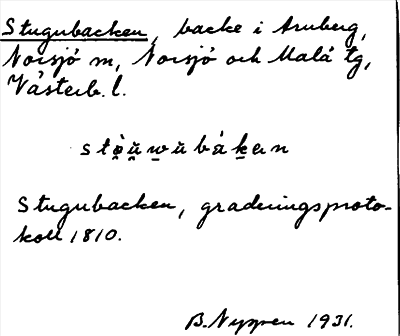 Stugubacken, backe i Aruberg,
Norsjö m, Norsjö och Malå tg,
Västerb. l.
Stugubacken, graderingsproto-
koll 1810.
B. Nygren 1931.